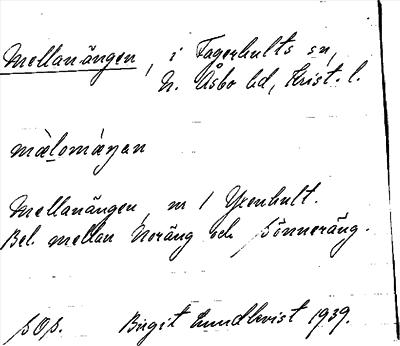 Mellanängen, i Fagerhults sn,
N. Åsbo hd, Krist. l.
mälomäŋen
Mellanängen, m 1 Yxenhult.
Bel. mellan Noräng och Sönneräng.
SOS. Birgit Lundkvist 1939.